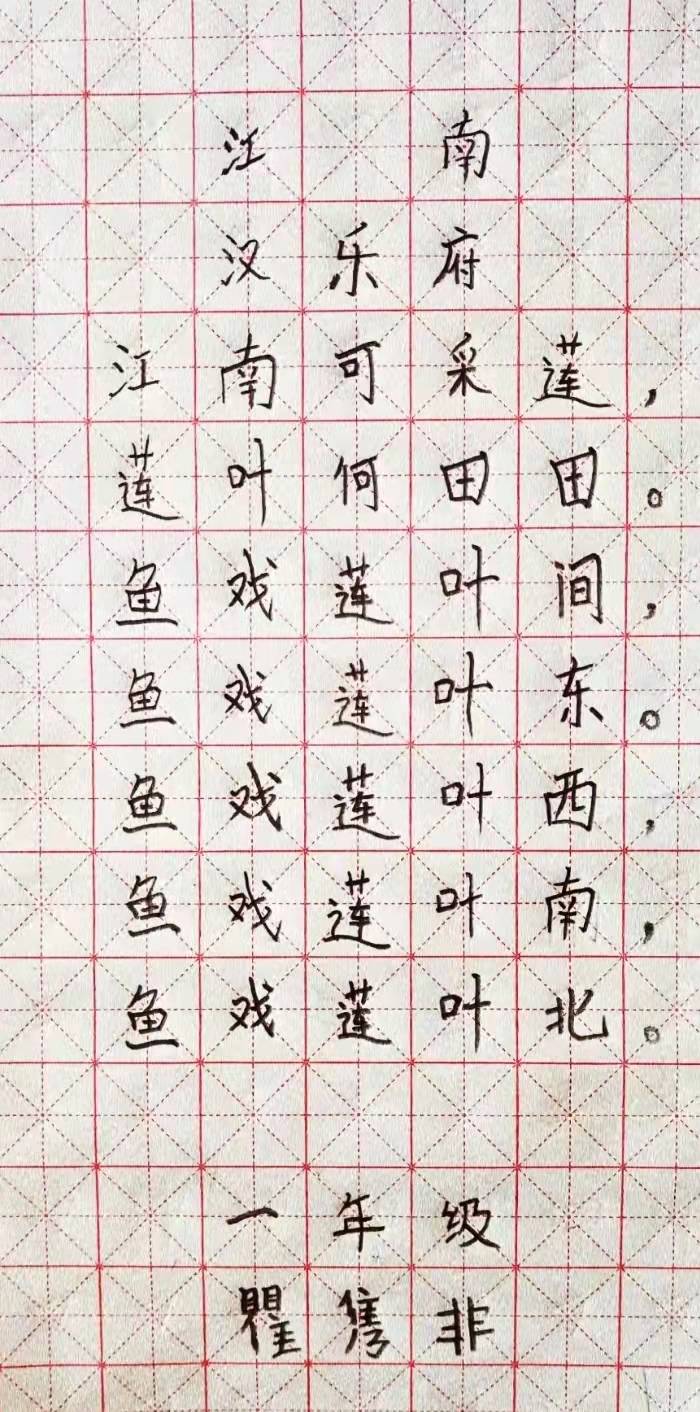 江南
汉乐府
江南可采莲，
莲叶何田田。
鱼戏莲叶间，
鱼戏莲叶东。
鱼戏莲叶西，
鱼戏莲叶南，
鱼戏莲叶北。
一年级
瞿隽非